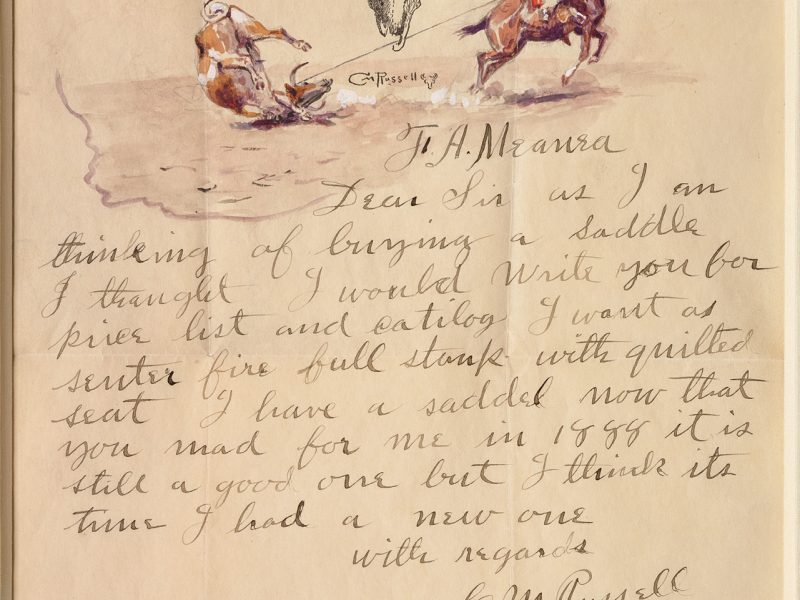 CM Russell
F. A. Meanea
Dear Sir as I am
thinking of buying a saddle
I thaught I would write you for
price list and catilog I want as
senter fire full stomp with quilted
seat I have a saddel now that
you mad for me in 1888 it is
still a good one but I think its
time I had a new one
with regards
C M Russell